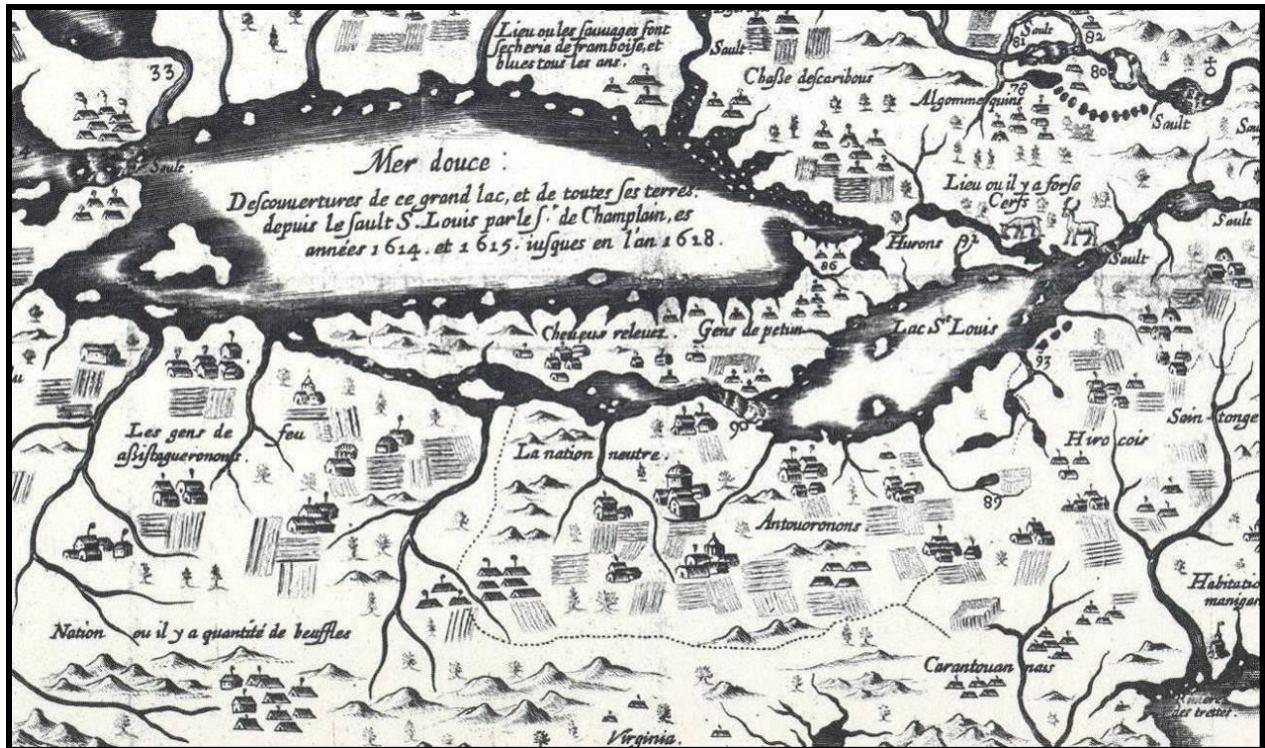 Lieu ou les sauuages font
secherie de framboise, et
blues tous les ans.
Sault
Sault
81
82
33
80
Chasse des caribous
78
Algommequins
Sault
Sault.
Mer douce :
Descouuertures de ce grand lac, et de toutes ses terres.
depuis le sault S. Louis par le sr. de Champlain, es
années 1614. et 1615. iusques en l'an 1618.
Lieu ou il y a forse
Cerfs
Sault
Hurons
92
Sault
86
Cheueus releuez.
Gens de petun
Lac St Louis
93
Les gens de feu
assistagueronons.
90
La nation neutre.
Hirocois
Saintonge
89
Antouoronons
Habitatio
Nation ou il y a quantité de beuffles
Carantouannais
des trettes.
Virginia.